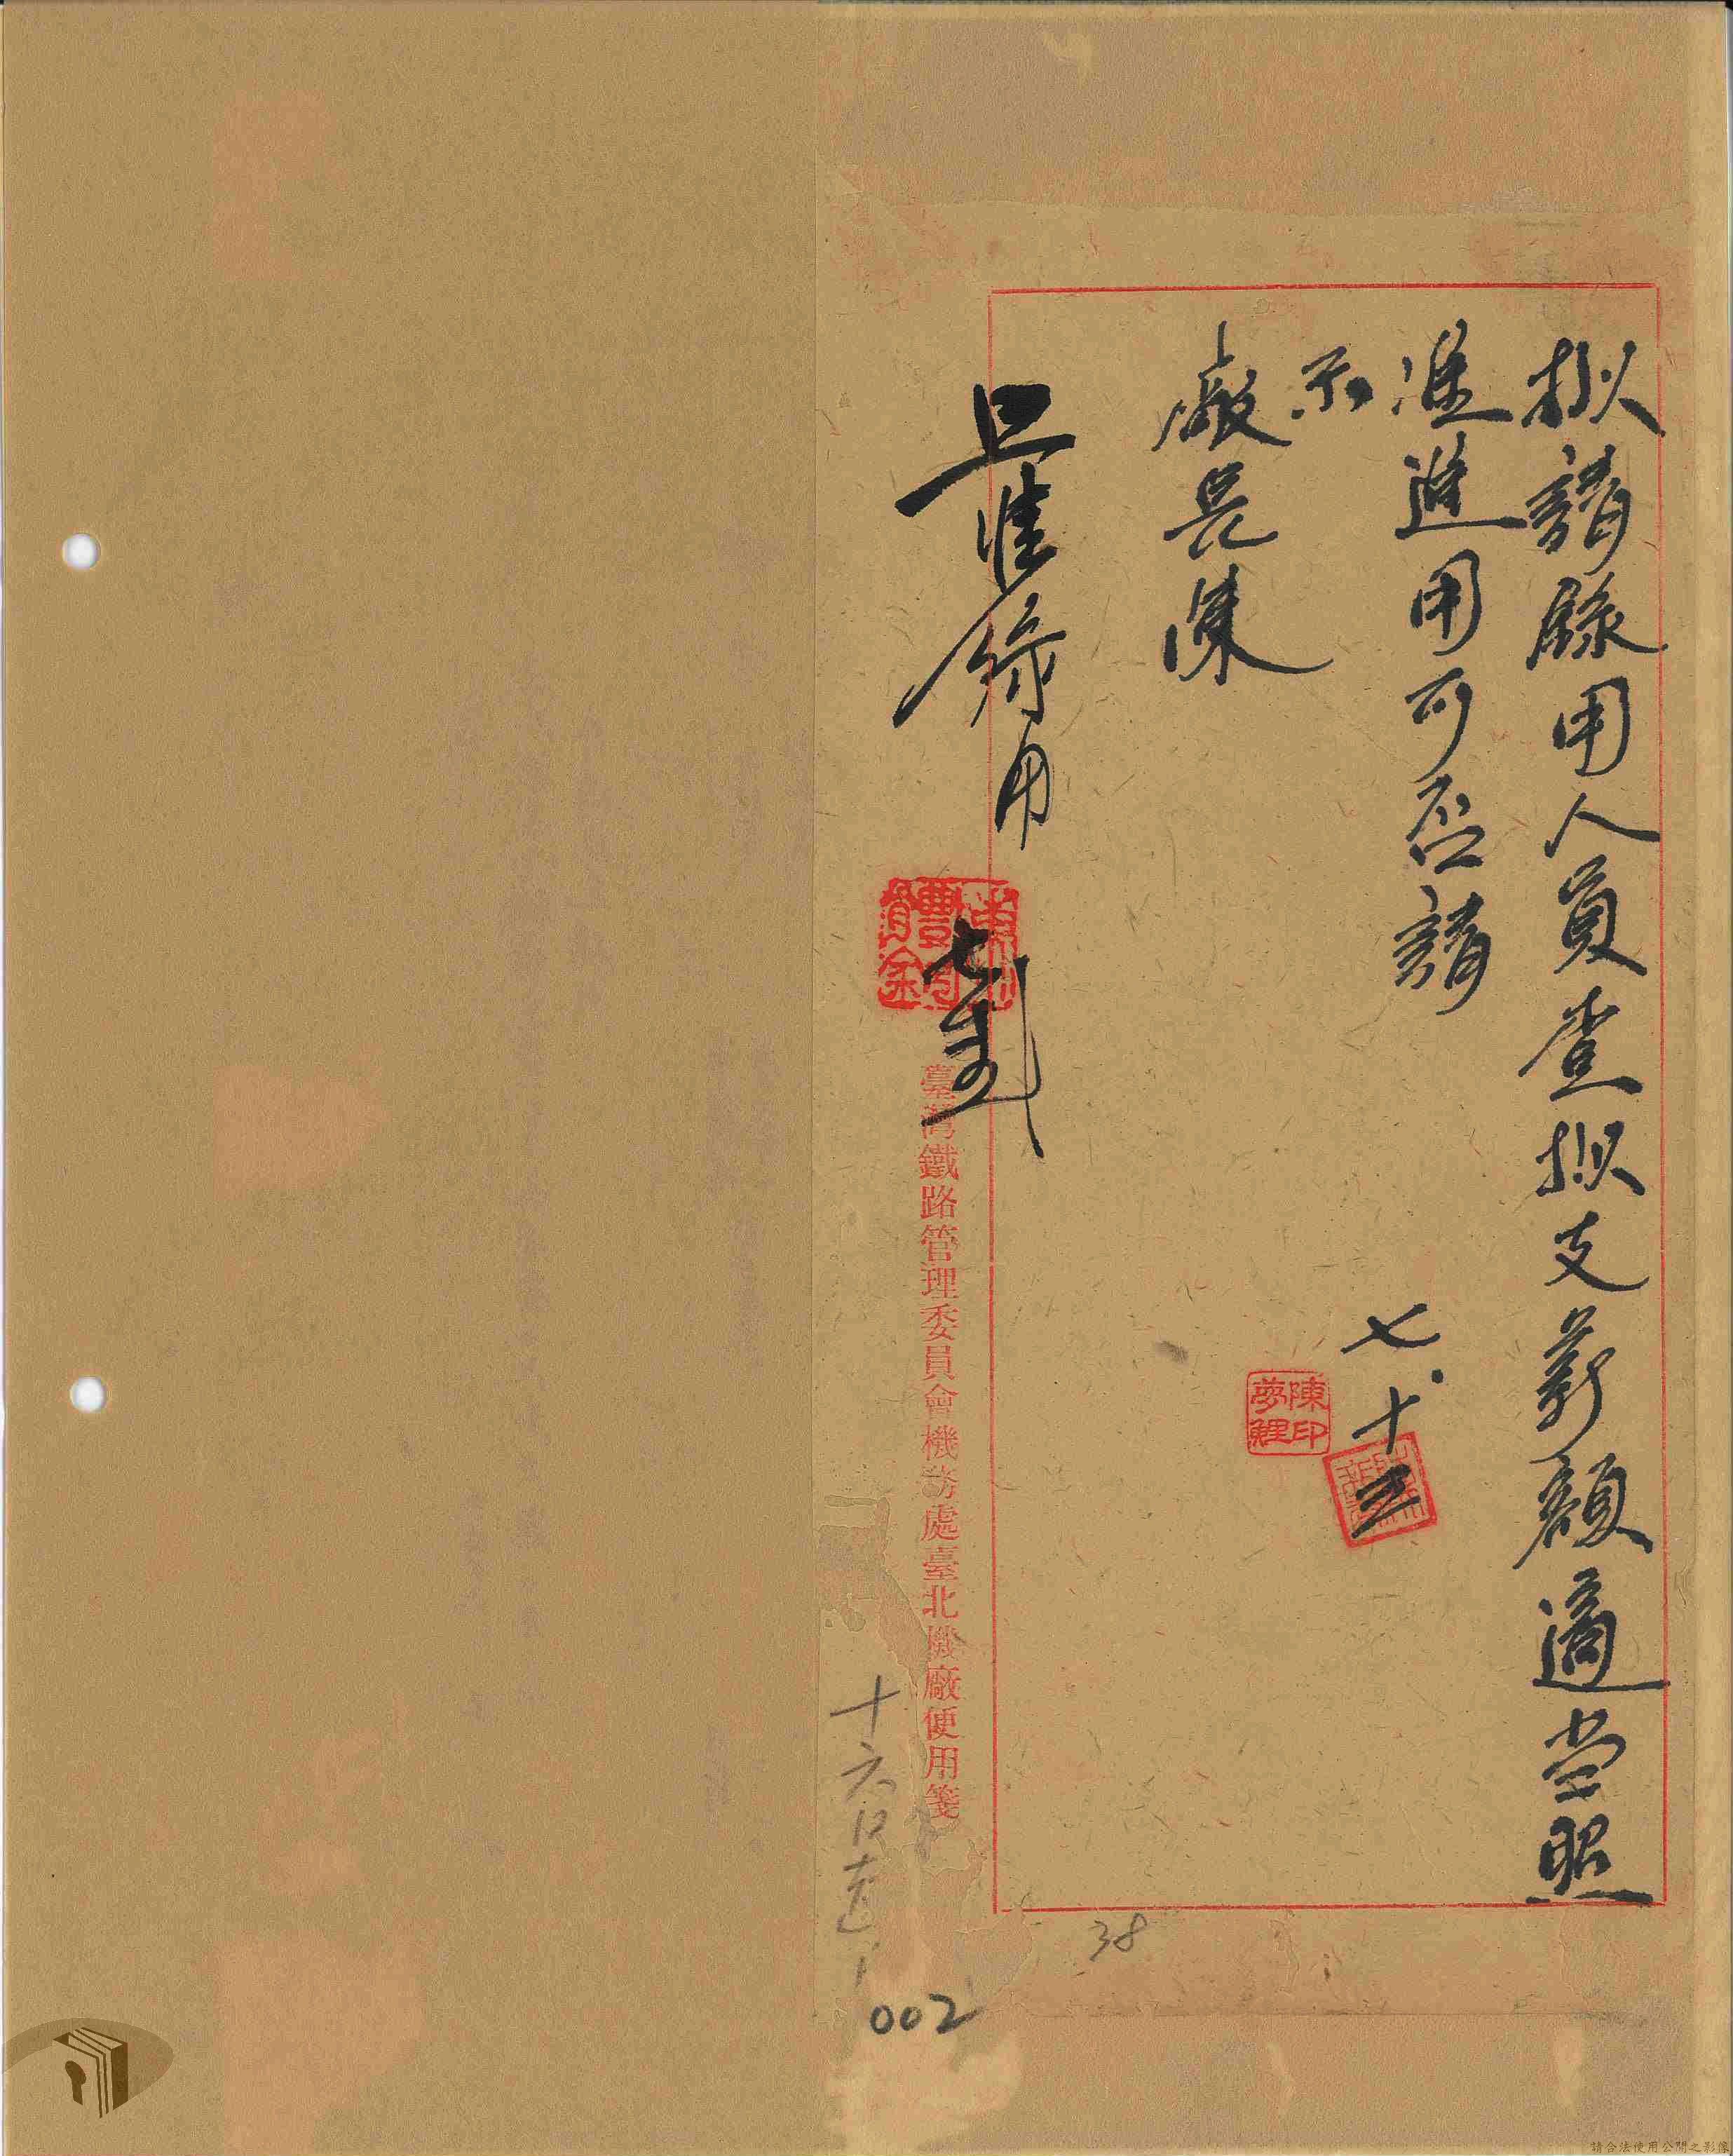 擬請錄用人員查擬支薪額適當照
准進用可否請
示
廠長陳
七.十三
陳印
夢鯉
准錄用
臺灣鐵路管理委員會機務處臺北機廠便用箋
38
002
請合法使用公開之影像